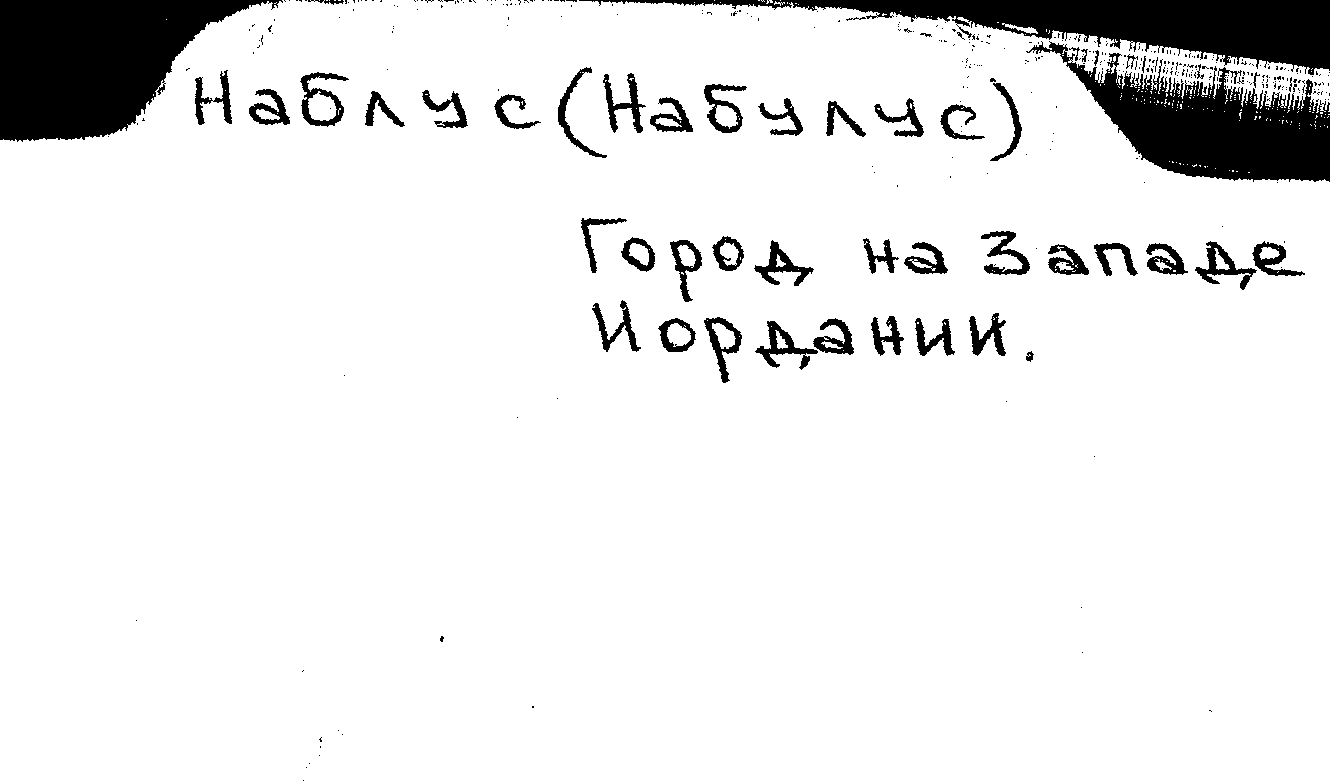 Наблус (Набулус)
Город на Западе
Иордании.